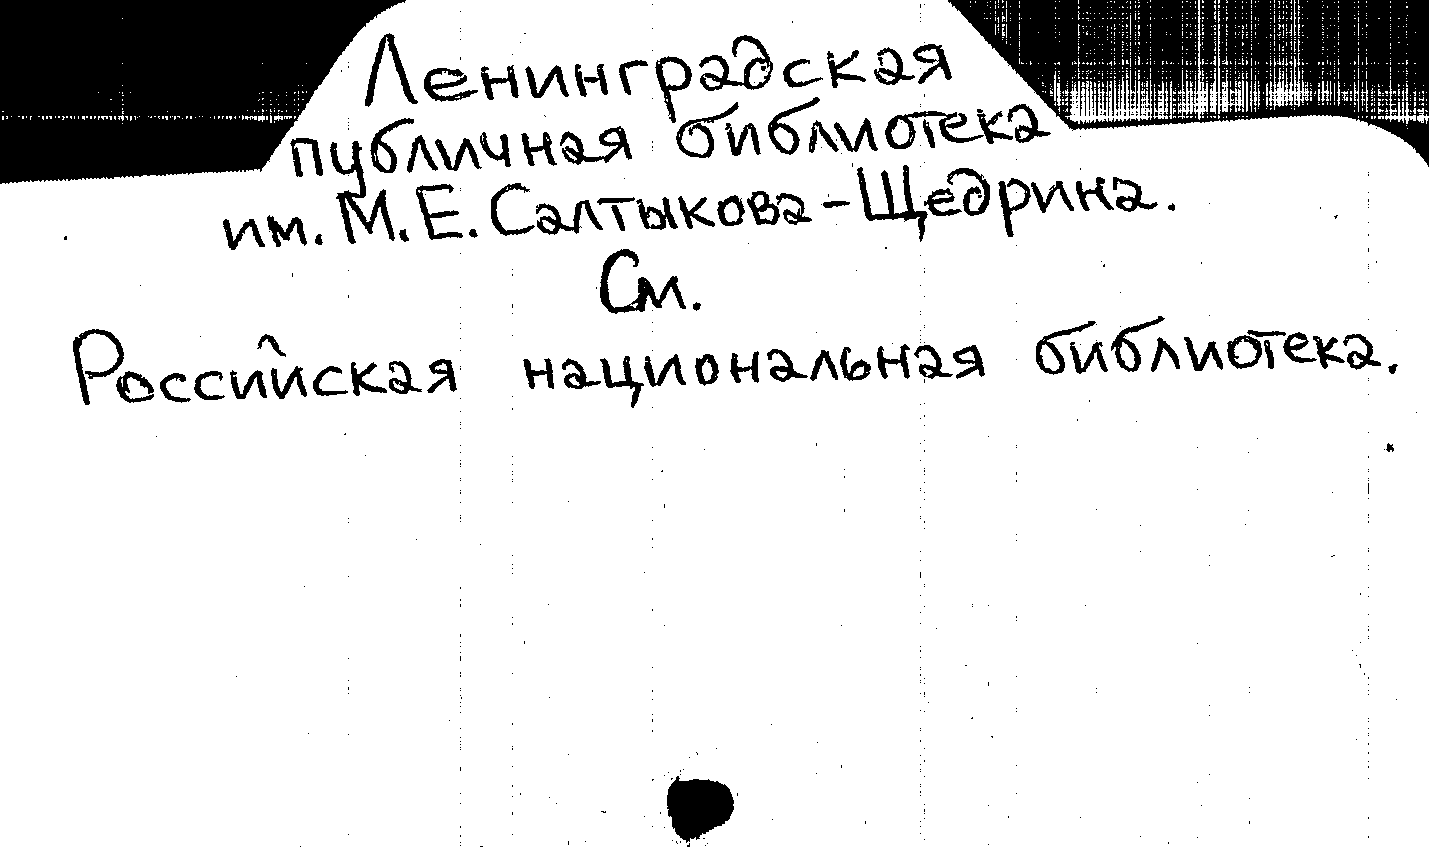 Ленинградская
публичная библиотека
им. М. Е. Салтыкова-Щедрина.
См.
Российская национальная библиотека.